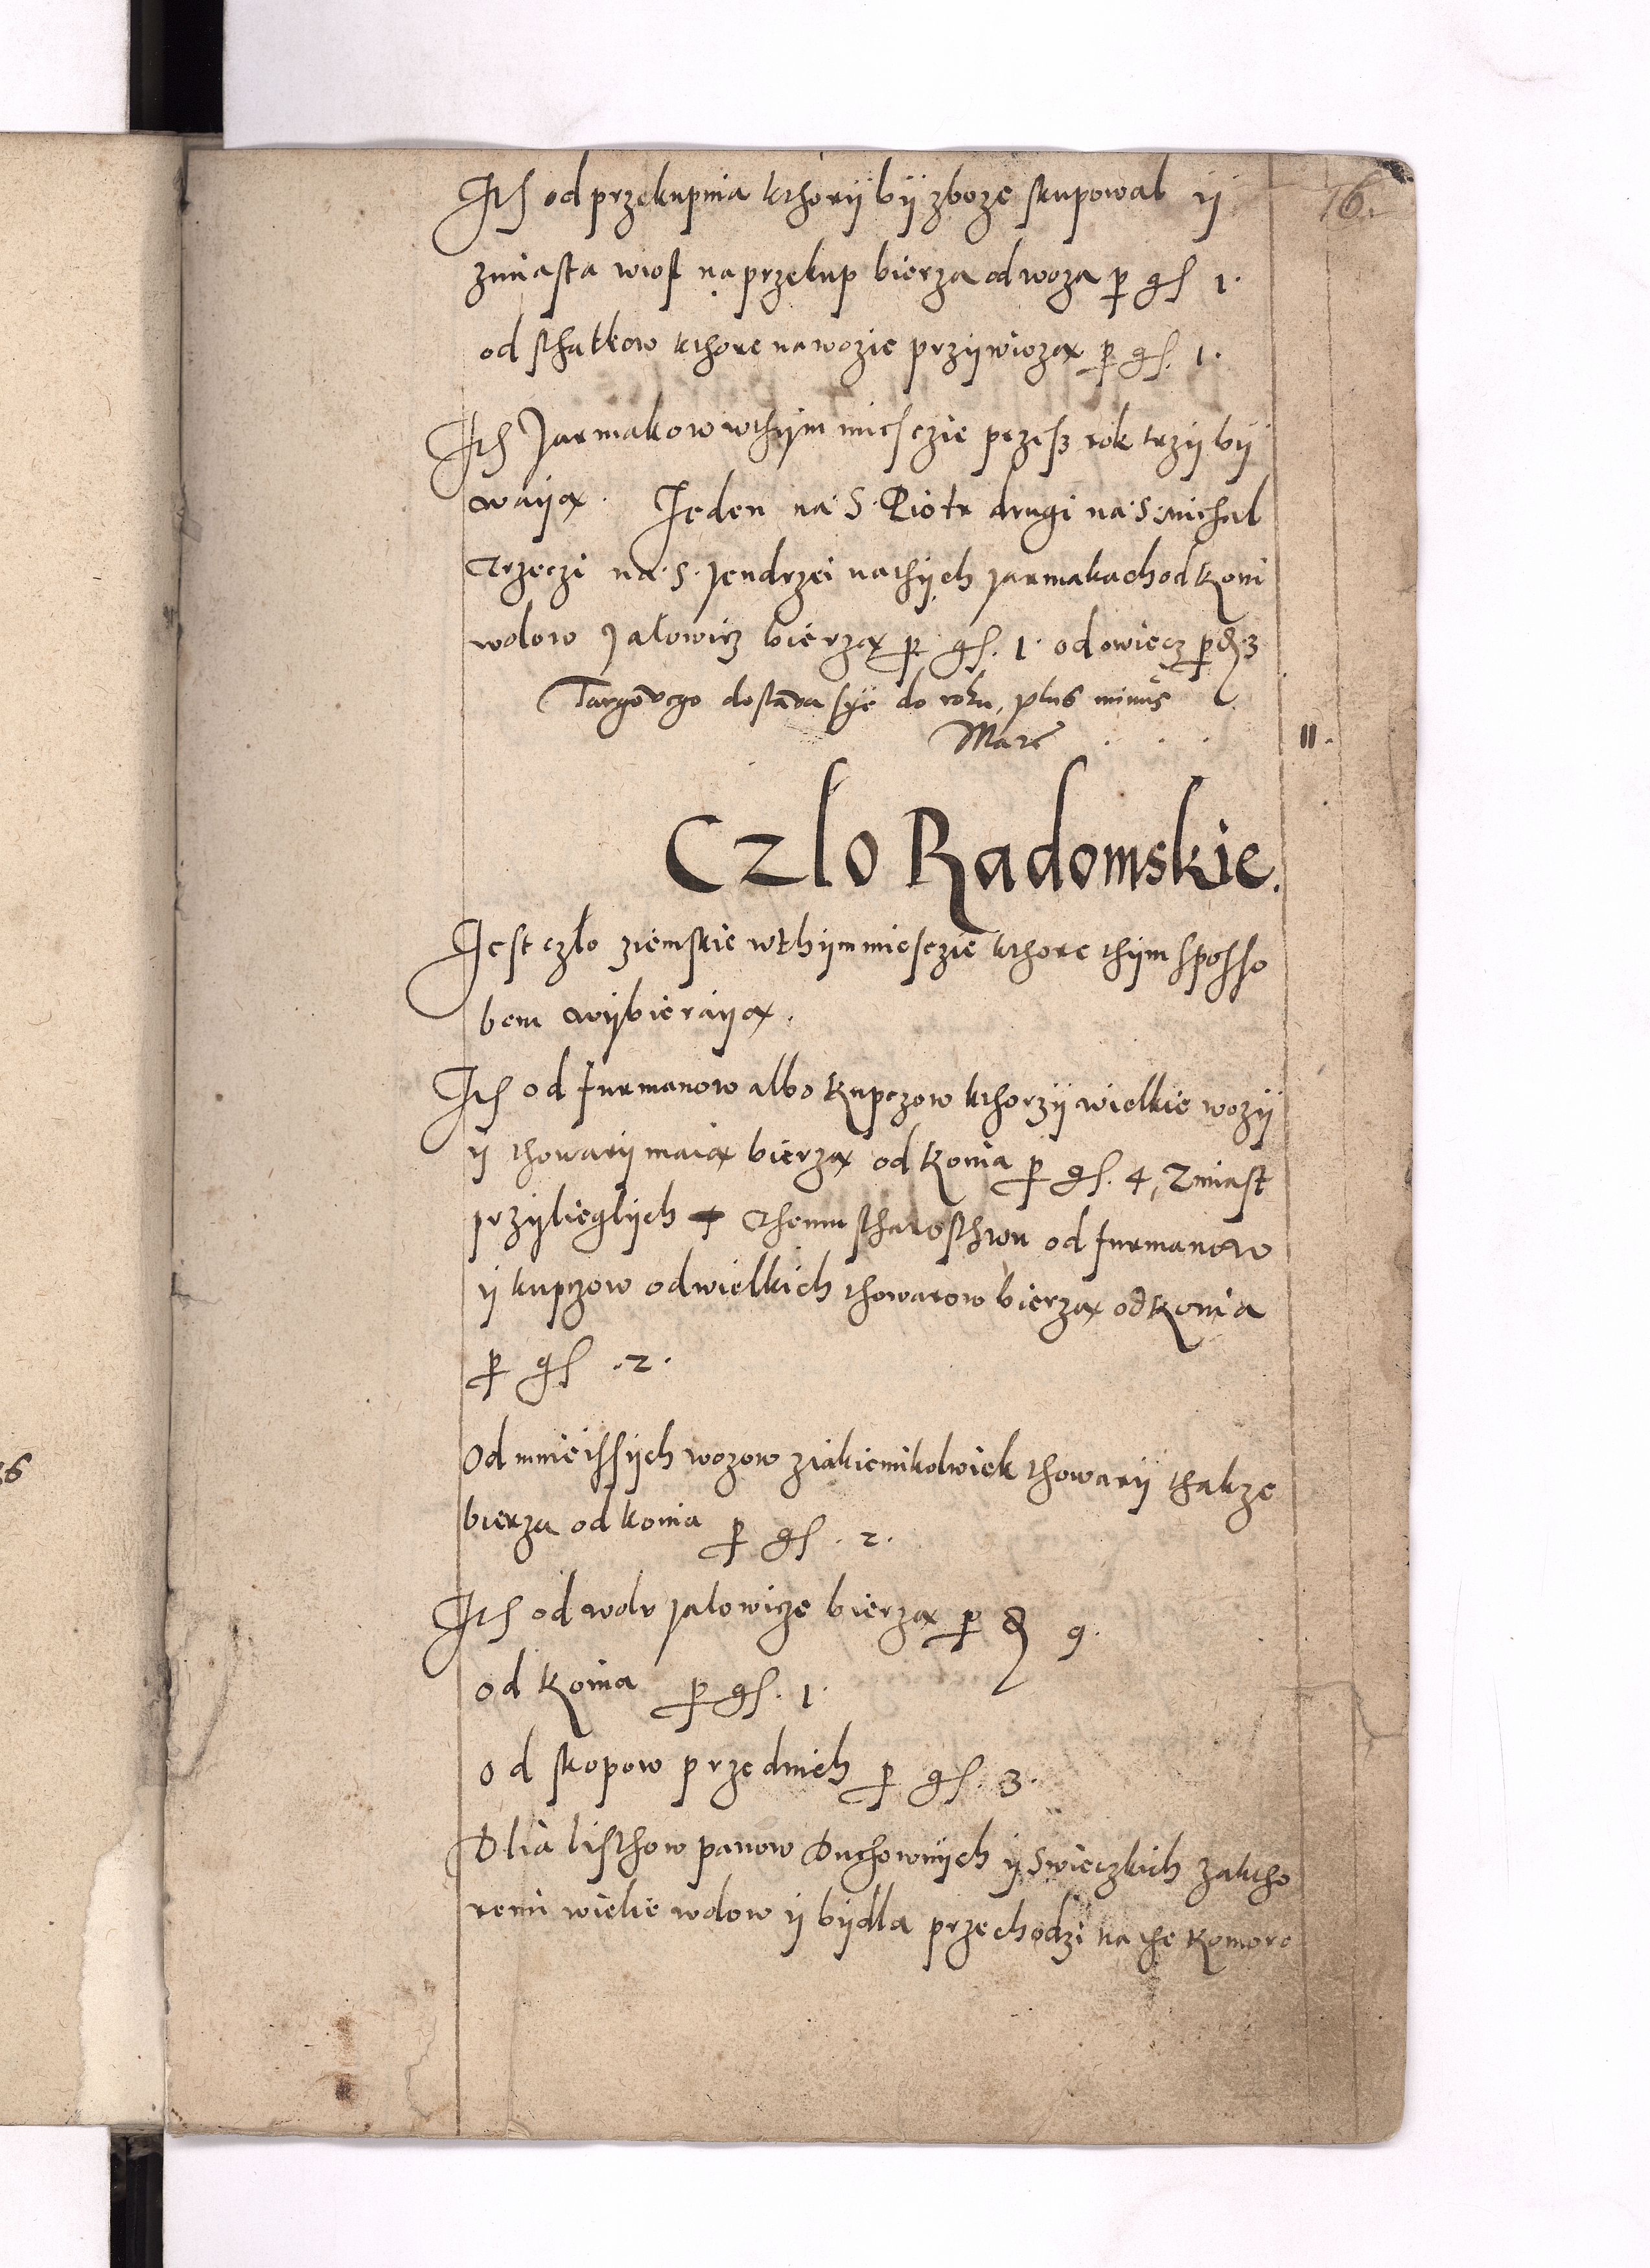 16.
Ith od przekupnia kthorÿ bÿ zboze skupowal ÿ
zmiasta wiosl na przekup bierza od woza p gs 1.
od sthatkow kthore na wozie przÿwioza̧ p gs. 1.
Ith Jarmakow wthÿm miesczie przesz rok trzÿ bÿ
waÿa̧. Jeden na S. Piotr drugi na S. Michal
Trzeczi na S. Jendrzei na thÿch Jarmakach od koni
wolow Jalowicz bierza̧ p gs. 1. od owiecz p d 3
Targowego dostawa sÿe do roku, plus minus
Marc . . . 11.
Czlo Radomskie.
Jest czlo ziemskie wthÿm miesczie kthore thÿm sposso
bem wÿbieraÿa̧.
Ith od furmanow albo kupczow kthorzÿ wielkie wozÿ
ÿ thowarÿ maia̧ bierza̧ od konia p gs. 4, Z miast
przÿlieglÿch themu starosthwu od furmanow
ÿ kupczow od wielkich thowarow bierza̧ od konia
p gs .2.
Od mnieissÿch wozow ziakiemikolwiek thowarÿ thakze
bierza od konia p gs . 2.
Ith od wolu jalowicze bierza̧ p d 9.
od konia p gs. 1.
od skopow przednich p gs. 3.
Dlia listhow panow Duchownÿch ÿ Swieczkich za ktho
remi wielie wolow ÿ bÿdla przechodzi na the komore